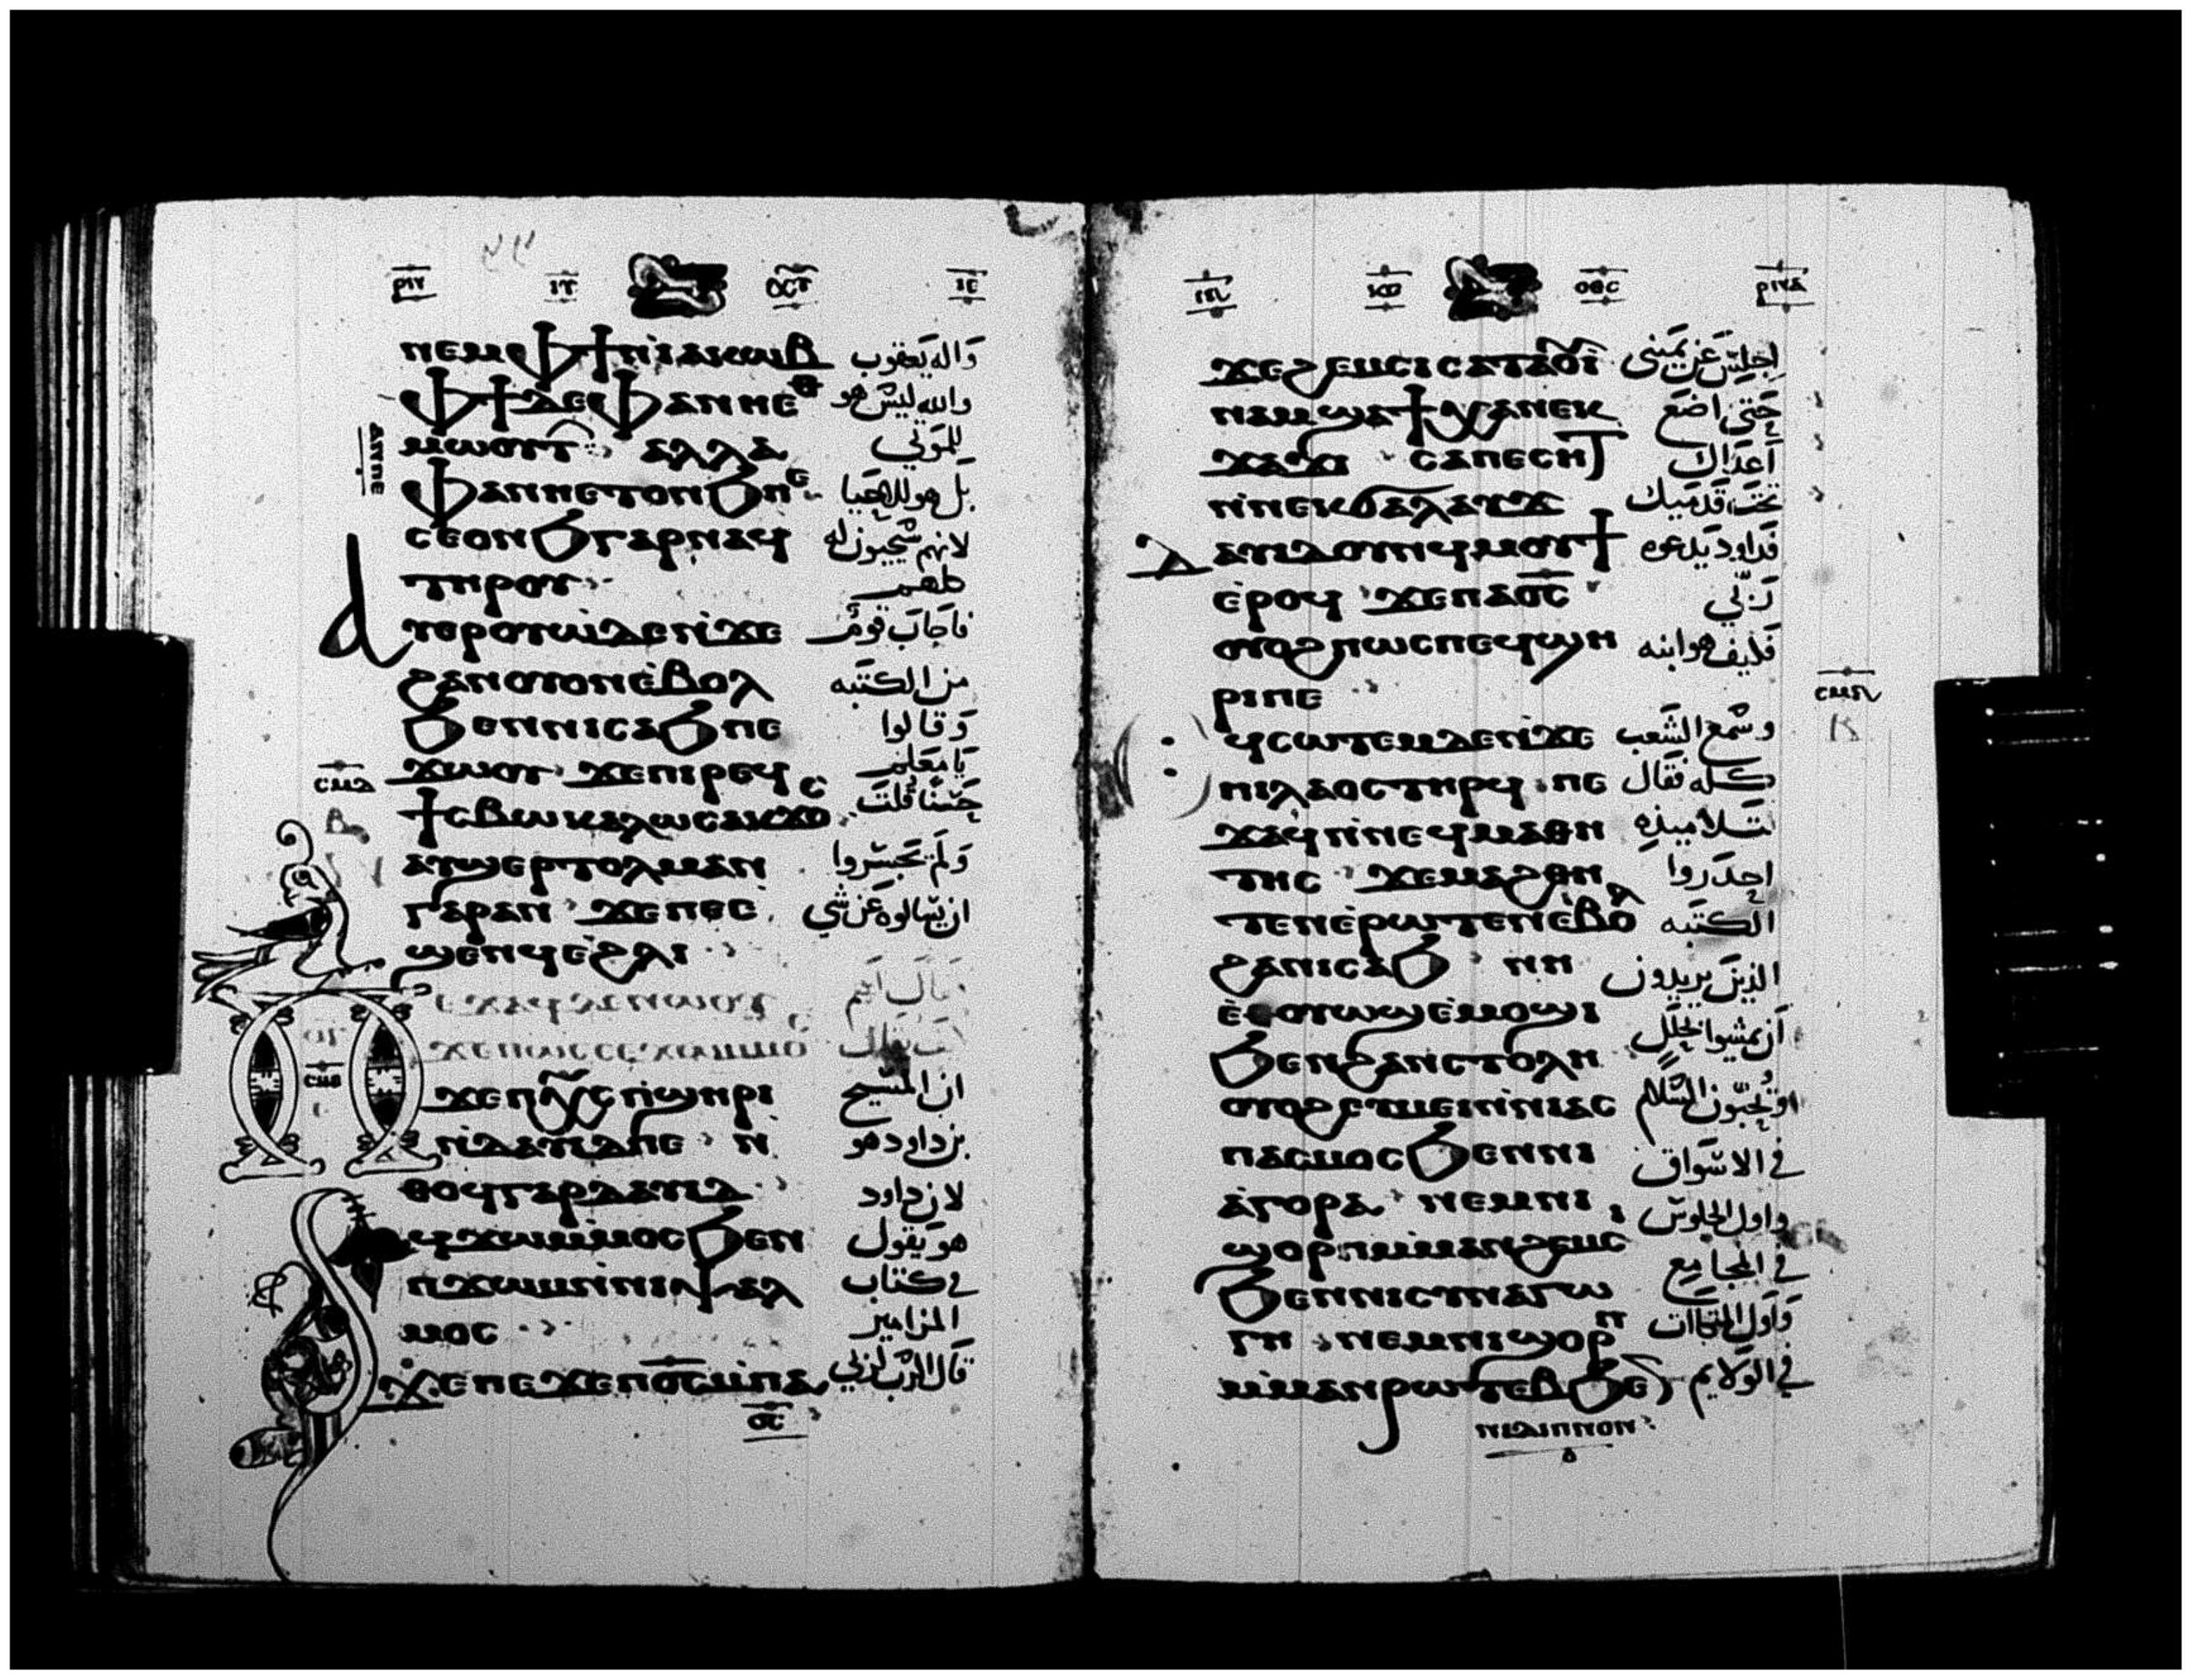 ⲛⲉⲙⲫϯⲛ̇ⲓⲁⲕⲱⲃ واله يعقوب
ⲫϯⲇⲉⲫⲁⲛⲛⲉⲑ والله ليس هو
ⲙⲱⲟⲩⲧ ⲁⲛ ⲁⲗⲗⲁ للموتي
ⲫⲁⲛⲛⲉⲧⲟⲛϧⲡⲉ بل هو للاحيا
ⲥⲉⲟⲛϧⲅⲁⲣⲛⲁϥ لانهم يحيون له
ⲧⲏⲣⲟⲩ كلهم
ⲁⲩⲉⲣⲟⲩⲱ̇ⲇⲉⲛ̇ϫⲉ فاجاب قوم
ϩⲁⲛⲟⲩⲟⲛⲉ̇ⲃⲟⲗ من الكتبه
ϧⲉⲛⲛⲓⲥⲁϧⲡⲉ وقالوا
ϫⲱⲟⲩ ϫⲉⲡⲓⲣⲉϥ يا معلم
ϯⲥⲃⲱⲕⲁⲗⲱⲥⲁⲕϫⲟⲥ حسنا قلت
ⲁⲩϣⲉⲣⲧⲟⲗⲙⲁⲛ ولم يجسروا
ⲅⲁⲣⲁⲛ ϫⲉⲛⲉⲥ ان يسالوه عن شي
ϣⲉⲛϥⲉ̇ϩⲗⲓ
ϫⲉⲡⲭⲥⲡ̇ϣⲏⲣⲓ ان المسيح
ⲛ̇ⲇⲁⲩⲓⲇⲡⲉ ⲛ̇ بن داود هو
ⲑⲟϥⲅⲁⲣⲇⲁⲩⲓⲇ لان داود
ϥϫⲱⲙ̇ⲙⲟⲥϧⲉⲛ هو يقول
ⲡϫⲱⲙⲛ̇ⲛⲓⲯⲁⲗ في كتاب
ⲙⲟⲥ المزامير
ϫⲉⲡⲉϫⲉⲡⲟ̅ⲥ̅ⲙ̇ⲡⲁ قال الرب لربي
ⲟ̅ⲥ̅
ϫⲉϩⲉⲙⲥⲓⲥⲁⲧⲁⲟⲩⲓ اجلس عن يميني
ⲛⲁⲙϣⲁϯⲭⲁⲛⲉⲕ حتي اضع
ϫⲁϫⲓ ⲥⲁⲡⲉⲥⲏⲧ اعداك
ⲛ̇ⲛⲉⲕϭⲁⲗⲁⲩϫ تحت قدميك
ⲇⲁⲩⲓⲇⲟⲩⲛϥⲙⲟⲩϯ فداود يدعوه
ⲉ̇ⲣⲟϥ ϫⲉⲡⲁⲟ̅ⲥ̅ ربي
ⲟⲩⲟϩⲡⲱⲥⲡⲉϥϣⲏ فكيف هو ابنه
ⲣⲓⲡⲉ
ϥⲥⲱⲧⲉⲙⲇⲉⲛ̇ϫⲉ وسمع الشعب
ⲡⲓⲗⲁⲟⲥⲧⲏⲣϥ ⲡⲉ كله فقال
ϫⲁϥⲛ̇ⲛⲉϥⲙⲁⲑⲏ لتلاميذه
ⲧⲏⲥ ϫⲉⲙⲁϩⲑⲏ احدروا
ⲧⲉⲛⲉ̇ⲣⲱⲧⲉⲛⲉ̇ⲃⲟⲗ الكتبه
ϩⲁⲛⲓⲥⲁϧ ⲛⲏ الذين يريدون
ⲉ̇ⲑⲟⲩⲱϣⲉ̇ⲙⲟϣⲓ ان يمشوا بحلل
ϧⲉⲛϩⲁⲛⲥⲧⲟⲗⲏ
ⲟⲩⲟϩⲥⲉⲙⲉⲓⲛ̇ⲛⲓⲁⲥ ويحبون السلام
ⲡⲁⲥⲙⲟⲥϧⲉⲛⲛⲓ في الاسواق
ⲁ̇ⲅⲟⲣⲁ ⲛⲉⲙⲛⲓ واول الجلوس
ϣⲟⲣⲡⲙ̇ⲙⲁⲛϩⲉⲙⲥ في المجامع
ϧⲉⲛⲛⲓⲥⲩⲛⲁⲅⲱ
ⲅⲏ ⲛⲉⲙⲛⲓϣⲟⲣⲡ واول المتكاات
ⲙ̇ⲙⲁⲛⲣⲱⲧⲉⲃϧⲉⲛ في الولايم
ⲛⲓⲇⲓⲡⲛⲟⲛ